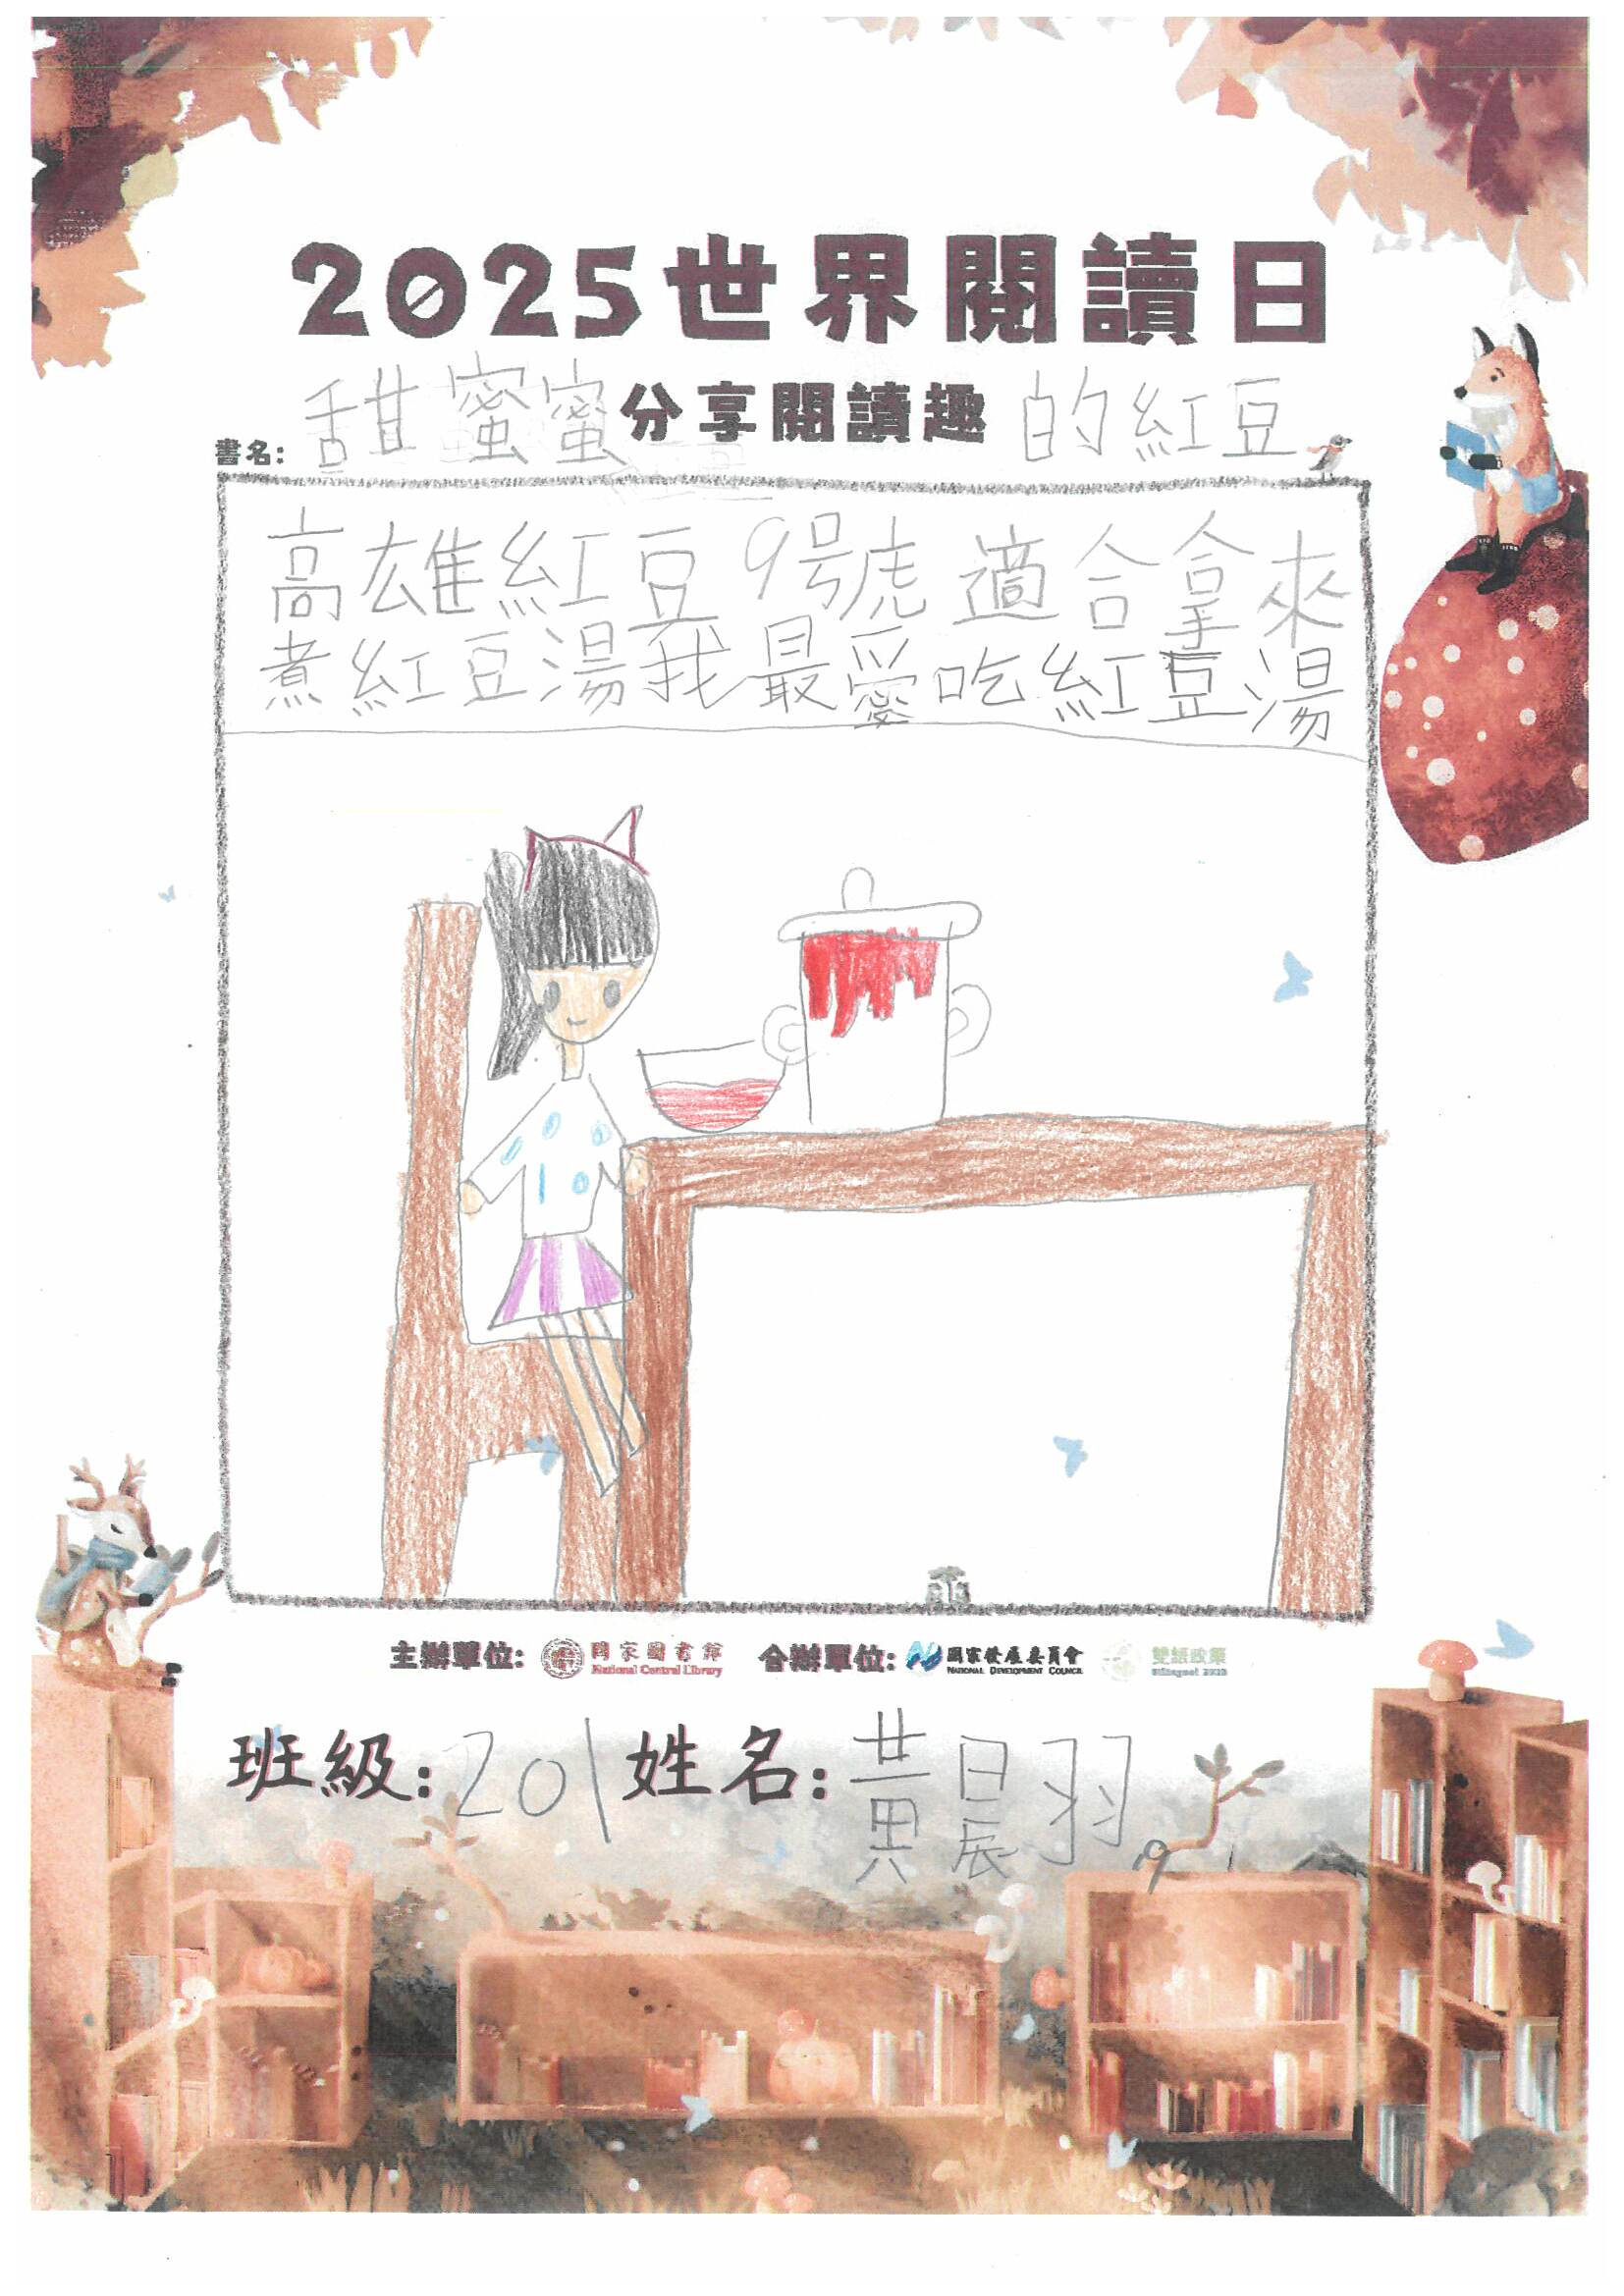 2025世界閱讀日
分享閱讀趣
書名: 甜蜜蜜的紅豆
高雄紅豆9號適合拿來
煮紅豆湯我最愛吃紅豆湯
主辦單位: 國家圖書館 National Central Library 合辦單位: 國家發展委員會 NATIONAL DEVELOPMENT COUNCIL 雙語政策 Bilingual 2030
班級: 201 姓名: 黃晨羽 19